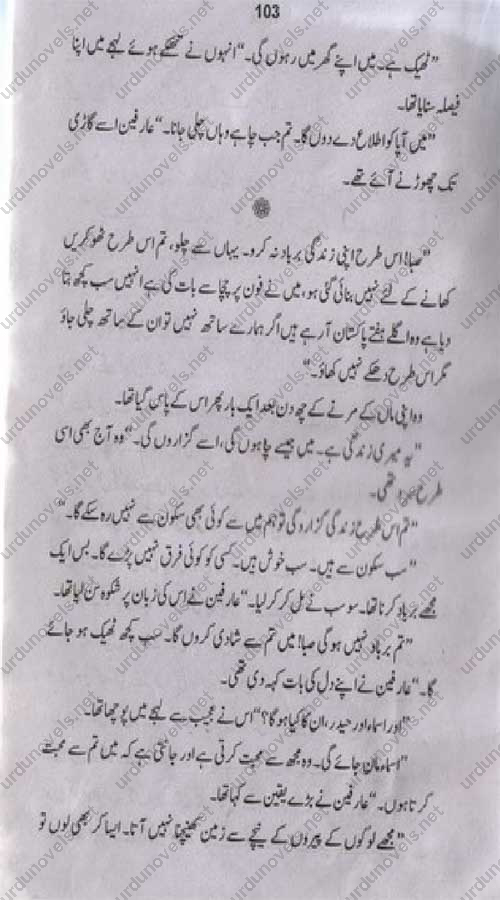 103
”ٹھیک ہے۔ میں اپنے گھر میں رہوں گی۔“ انہوں نے تھکے ہوئے لہجے میں اپنا
فیصلہ سنایا تھا۔
”میں آپا کو اطلاع دے دوں گا۔ تم جب چاہے وہاں چلی جانا۔“ عارفین اسے گاڑی
تک چھوڑنے آئے تھے۔
”صبا! اس طرح اپنی زندگی برباد نہ کرو۔ یہاں سے چلو، تم اس طرح ٹھوکریں
کھانے کے لئے نہیں بنائی گئی ہو، میں نے فون پر چچا سے بات کی ہے انہیں سب کچھ بتا
دیا ہے وہ اگلے ہفتے پاکستان آ رہے ہیں اگر ہمارے ساتھ نہیں تو ان کے ساتھ چلی جاؤ
مگر اس طرح دھکے نہیں کھاؤ۔“
وہ اپنی ماں کے مرنے کے چھ دن بعد ایک بار پھر اس کے پاس گیا تھا۔
”یہ میری زندگی ہے۔ میں جیسے چاہوں گی، اسے گزاروں گی۔“ وہ آج بھی اسی
طرح تھی۔
”تم اس طرح زندگی گزارو گی تو ہم میں سے کوئی بھی سکون سے نہیں رہ سکے گا۔“
”سب سکون سے ہیں۔ سب خوش ہیں۔ کسی کو کوئی فرق نہیں پڑے گا۔ بس ایک
مجھے برباد کرنا تھا۔ سو سب نے مل کر کر لیا۔“ عارفین نے اس کی زبان پر شکوہ سن لیا تھا۔
”تم برباد نہیں ہو گی صبا! میں تم سے شادی کروں گا۔ سب کچھ ٹھیک ہو جائے
گا۔“ عارفین نے اپنے دل کی بات کہہ دی تھی۔
”اور اسماء اور حیدر، ان کا کیا ہو گا؟“ اس نے عجیب سے لہجے میں پوچھا تھا۔
”اسماء مان جائے گی۔ وہ مجھ سے محبت کرتی ہے اور جانتی ہے کہ میں تم سے محبت
کرتا ہوں۔“ عارفین نے بڑے یقین سے کہا تھا۔
”مجھے لوگوں کے پیروں کے نیچے سے زمین کھینچنا نہیں آتا۔ ایسا کر بھی لوں تو
urdunovels.net